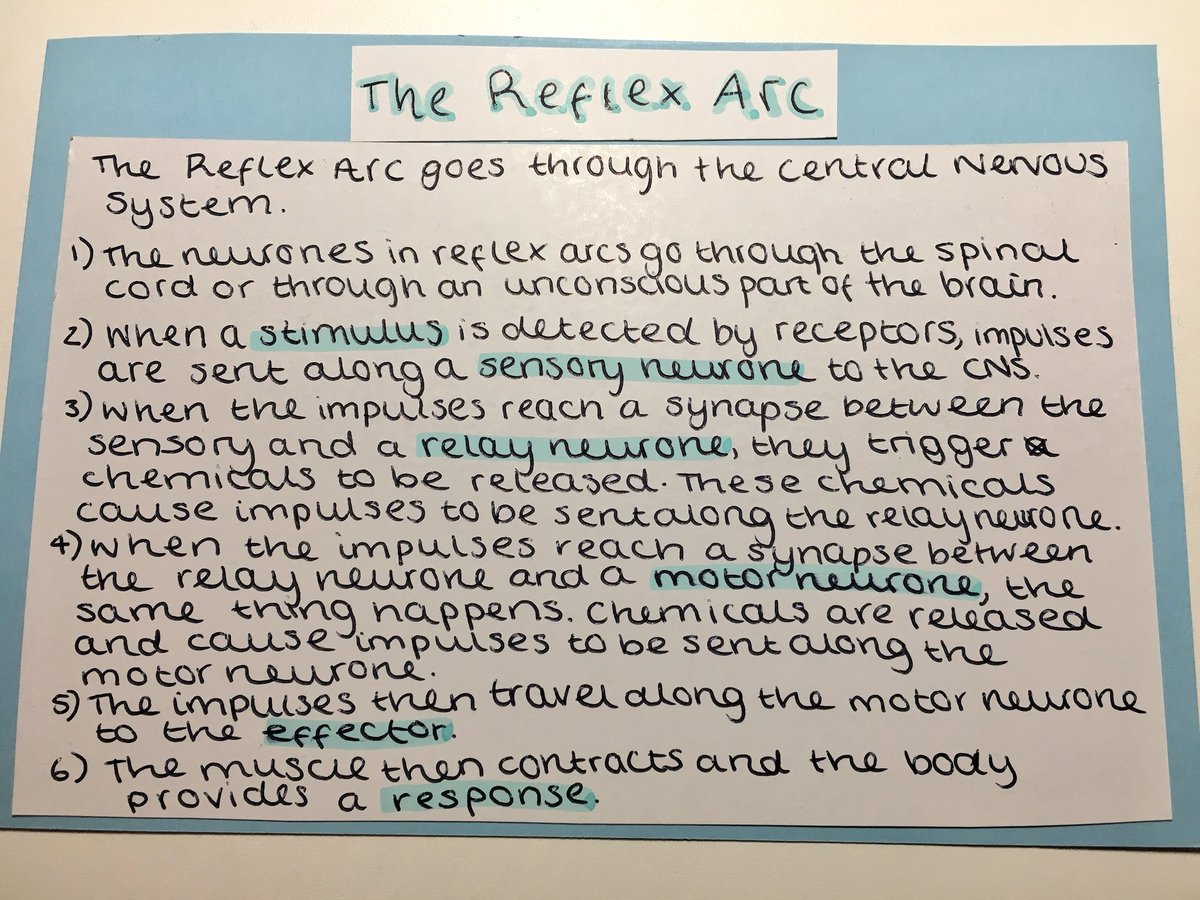 The Reflex Arc
The Reflex Arc goes through the central Nervous
System.
1) The neurones in reflex arcs go through the spinal
cord or through an unconscious part of the brain.
2) When a stimulus is detected by receptors, impulses
are sent along a sensory neurone to the CNS.
3) When the impulses reach a synapse between the
sensory and a relay neurone, they trigger
chemicals to be released. These chemicals
cause impulses to be sent along the relay neurone.
4) When the impulses reach a synapse between
the relay neurone and a motor neurone, the
same thing happens. Chemicals are released
and cause impulses to be sent along the
motor neurone.
5) The impulses then travel along the motor neurone
to the effector.
6) The muscle then contracts and the body
provides a response.